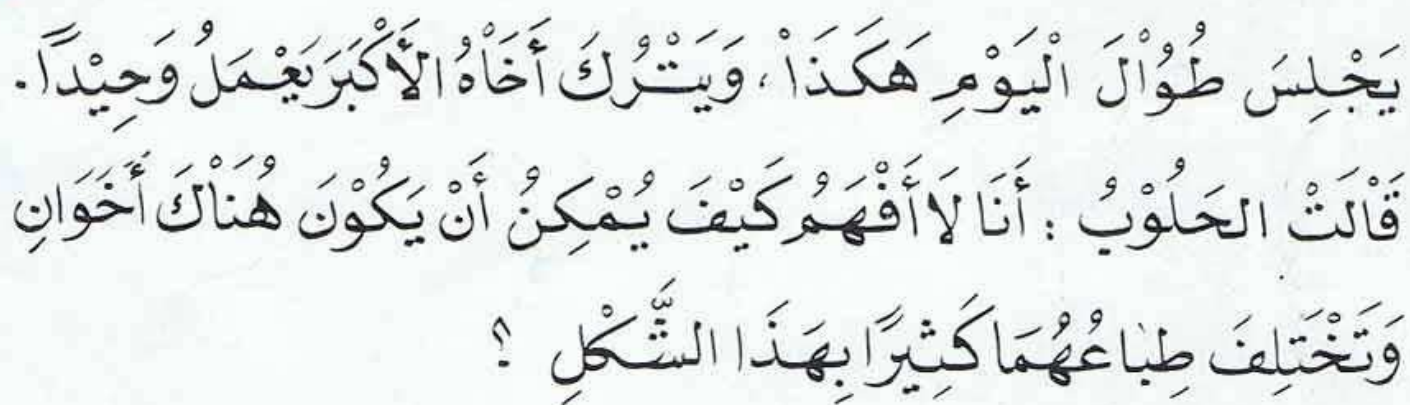 يَجْلِسَ طُوْالَ الْيَوْمِ هَكَذَاْ، وَيَتْرُكَ أَخَاْهُ الأَكْبَرَ يَعْمَلُ وَحِيْدًا.
قَاْلَتْ الحَلُوْبُ : أَنَا لاَ أَفْهَمُ كَيْفَ يُمْكِنُ أَنْ يَكُوْنَ هُنَاْكَ أَخَوَانِ
وَتَخْتَلِفَ طِبَاعُهُمَا كَثِيرًا بِهَذَا الشَّكْلِ ؟